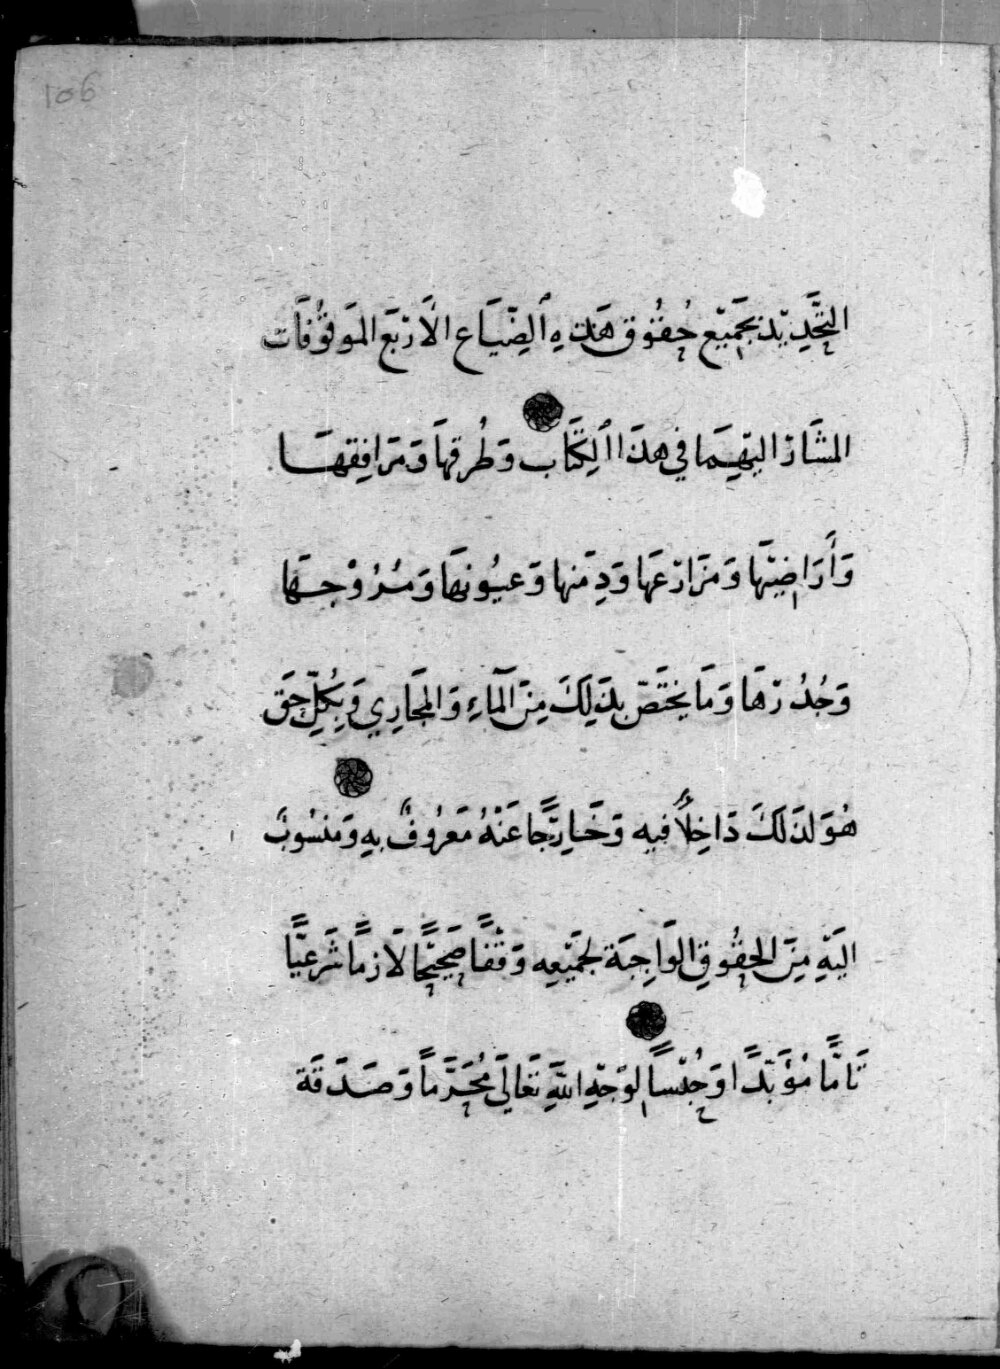 106
التَّحْدِيْدِ بجَمِيْع حُقُوق هَذِهِ ٱلضِّيَاع الَارْبَع المَوقُوفَات
المشَارْ اليَهِمَا في هذَا ٱلكِتَاب وَطُرقهَا وَمَرَافِقهَا
وَأَرَاضِيْهَا وَمَزَارْعهَا وَدِمَنها وَعيُونهَا وَمُرُوْجهَا
وَجُدُرْهَا وَمَا يختَصّ بذَلِكَ مِنَ الَمآءِ وَالمجَارِي وَبِكُلِّ حَقٍ
هُوَ لذَلكَ دَاخِلاً فيه وَخَارِجًا عَنْهُ مَعرُوفٌ بهِ وَمَنسُوبٌ
اليَهِ مِنَ الحقُوقِ الوَاجبَة لجَمِيْعِه وَقْفًا صَحِيْحًا لَازمًا شَرعيًّا
تَامًّا مُؤَبّدًا وَحُبْسًا لوَجْهِ اللهِ تَعَالَى مُحَرَّمًا وَصَدَقَة